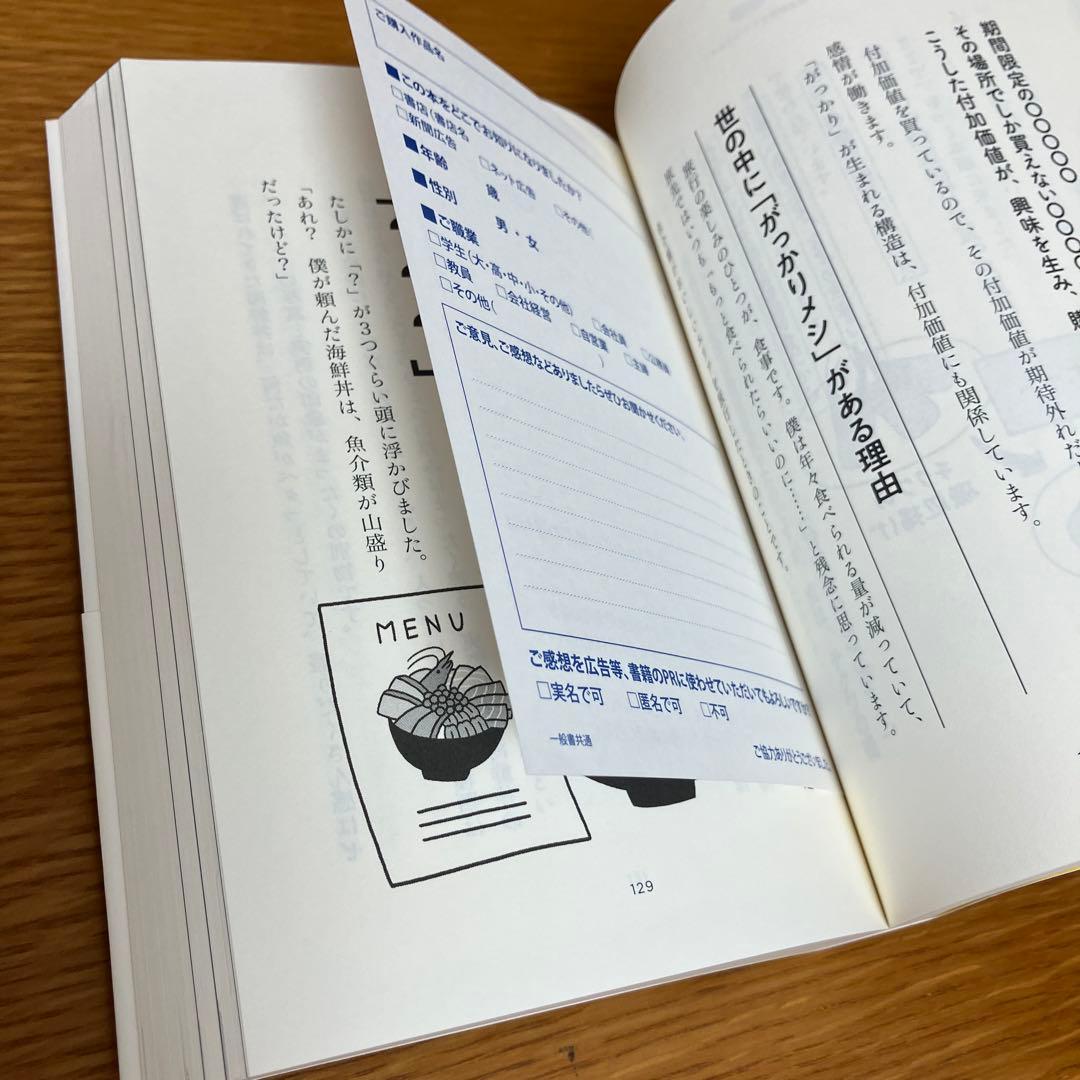 期間限定の〇〇〇〇
その場所でしか買えない〇〇〇〇
こうした付加価値が、興味を生み、
付加価値を買っているので、その付加価値が期待外れだ
感情が働きます。
「がっかり」が生まれる構造は、付加価値にも関係しています。
世の中に「がっかりメシ」がある理由
旅行の楽しみのひとつが、食事です。僕は年々食べられる量が減っていて、
旅先ではいつも「もっと食べられたらいいのに……」と残念に思っています。
ご購入作品名
■この本をどこでお知りになりましたか?
□書店(書店名
□新聞広告 □ネット広告 □その他(
■年齢 歳
■性別 男・女
■ご職業
□学生(大・高・中・小・その他) □会社員 □公務員
□教員 □会社経営 □自営業 □主婦
□その他( )
ご意見、ご感想などありましたらぜひお聞かせください。
ご感想を広告等、書籍のPRに使わせていただいてもよろしいですか?
□実名で可 □匿名で可 □不可
一般書共通
ご協力ありがとうございました。
たしかに「?」が3つくらい頭に浮かびました。
「あれ? 僕が頼んだ海鮮丼は、魚介類が山盛り
だったけど?」
MENU
129